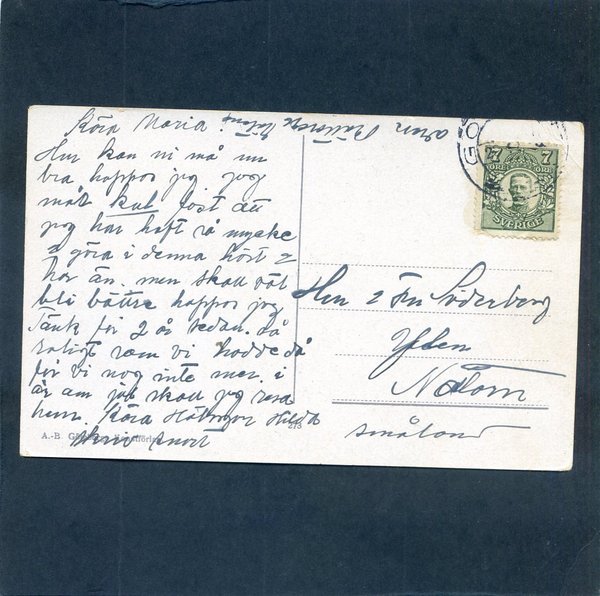 Kära Maria!
Hur kan ni må nu
bra hoppas jag jag
mår kul fast att
jag har haft så mycke
2 göra i denna höst 2
har än. men skall väl
bli bättre hoppas jag
Tänk för 2 år sedan. så
roligt som vi hadde då
får vi nog inte mer. i
år om jul skall jag resa
hem. Kära Hälsningar Hilda
skriv snart
A.-B.
273
7 7
ÖRE ÖRE
SVERIGE
Herr 2 Fru Söderberg
Småland